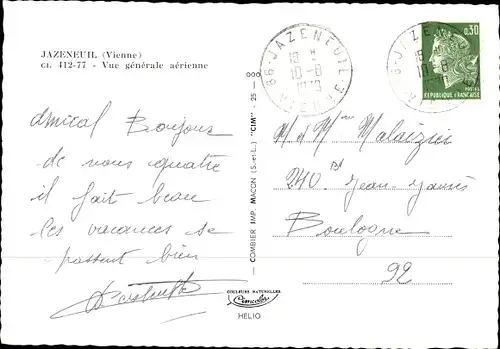 JAZENEUIL (Vienne)
Cl. 412-77 - Vue générale aérienne
Amical Bonjour
de nous quatre
il fait beau
les vacances se
passent bien
COMBIER IMP. MACON (S.-et-L.) "CIM" - 25 - 000
COULEURS NATURELLES
Cimcolor
HELIO
86 - JAZENEUIL
VIENNE
10-8
86 - JAZENEUIL
10-8
0,30
POSTES
REPUBLIQUE FRANCAISE
M et Mme
240 Bd Jean Jaurès
Boulogne
92